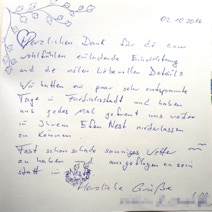 02.10.2016
Herzlichen Dank für die zum
wohlfühlen einladende Einrichtung
und die vielen liebevollen Details
Wir hatten ein paar sehr entspannte
Tage in und haben
uns jedes Mal gefreut uns wieder
in Ihrem Nest niederlassen
zu können.
Fast schon schade sonniges Wetter
zu haben und ausgeflogen zu sein
statt im
Herzliche Grüße